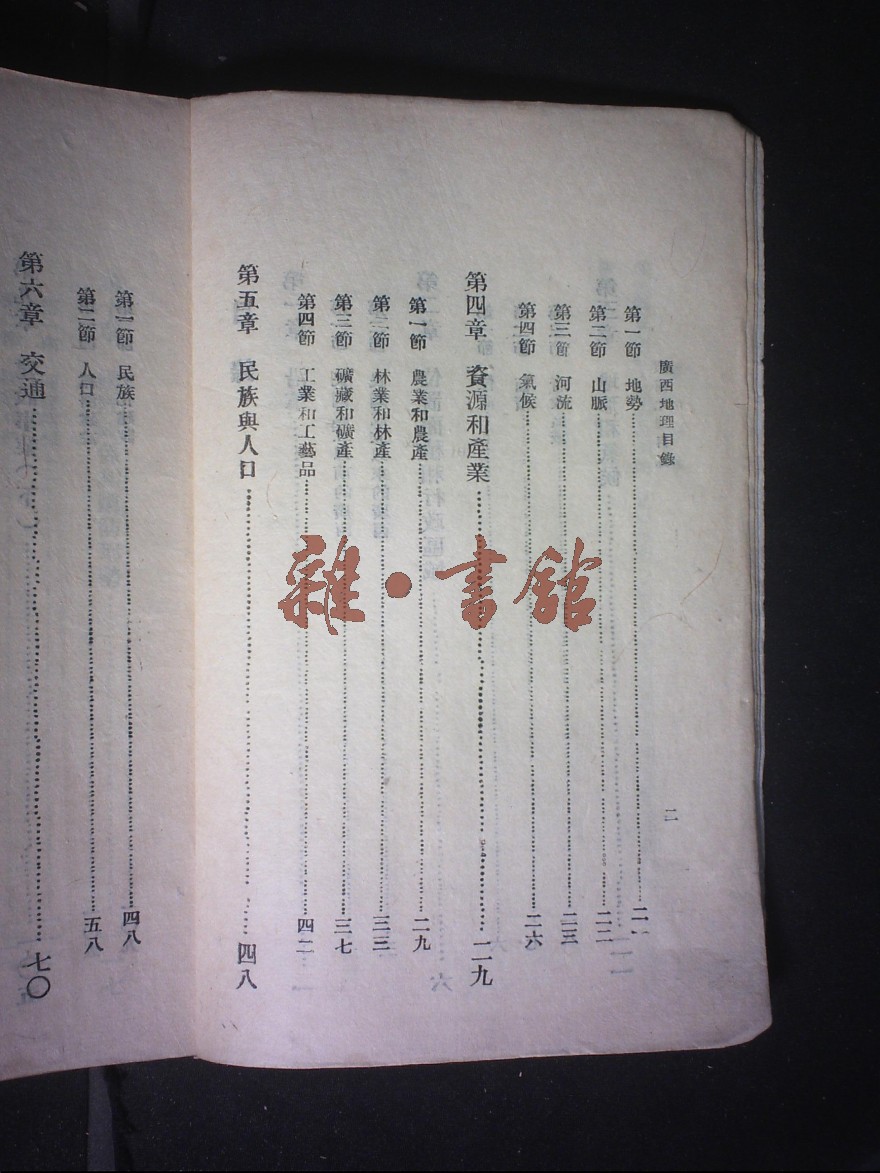 廣西地理目錄
二
第一節 地勢
第二節 山脈……二二
第三節 河流……二三
第四節 氣候……二六
第四章 資源和產業……二九
第一節 農業和農產……二九
第二節 林業和林產……三三
第三節 礦藏和礦產……三七
第四節 工業和工藝品……四二
第五章 民族與人口……四八
第一節 民族……四八
第二節 人口……五八
第六章 交通……七〇
雜·書館